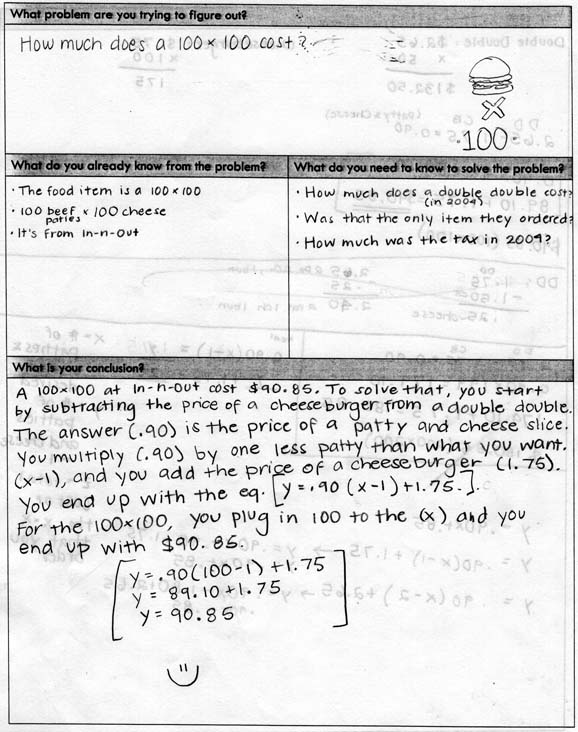 What problem are you trying to figure out?
How much does a 100 x 100 cost?
X
100
What do you already know from the problem?
• The food item is a 100 x 100
• 100 beef paties x 100 cheese
• It's from In-n-Out
What do you need to know to solve the problem?
• How much does a double double cost?
(in 2004)
• Was that the only item they ordered?
• How much was the tax in 2004?
What is your conclusion?
A 100x100 at In-n-Out cost $90.85. To solve that, you start
by subtracting the price of a cheeseburger from a double double.
The answer (.90) is the price of a patty and cheese slice.
You multiply (.90) by one less patty than what you want.
(x-1), and you add the price of a cheeseburger (1.75).
You end up with the eq. [y = .90 (x-1)+1.75.].
For the 100x100, you plug in 100 to the (x) and you
end up with $90.85.
y = .90(100-1) +1.75
y = 89.10 +1.75
y = 90.85